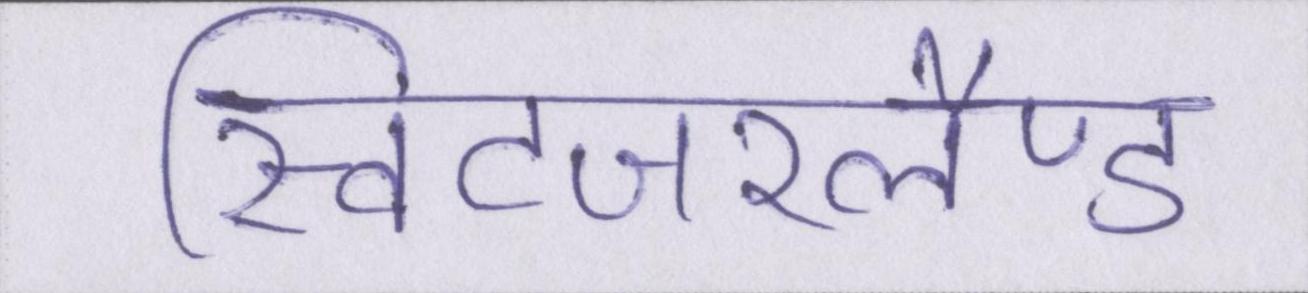 स्विटजरलैण्ड